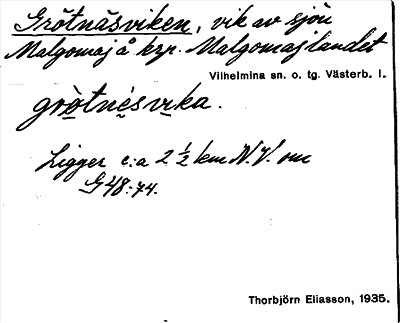 Grötnäsviken, vik av sjön
Malgomaj å krp. Malgomajlandet
Vilhelmina sn. o. tg. Västerb. l.
grò̱tnésvi̱ka.
Ligger c:a 2 ½ km N.V. om
G48:74.
Thorbjörn Eliasson, 1935.